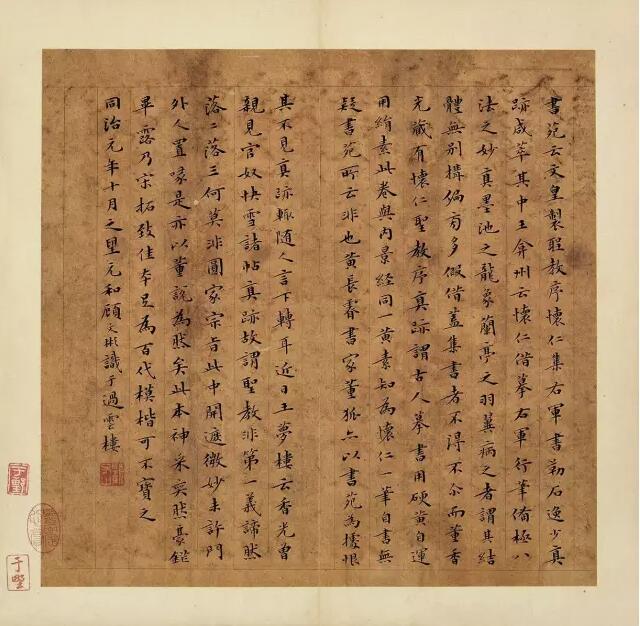 書苑云文皇製聖教序懷仁集右軍書勒石逸少真
跡咸萃其中王弇州云懷仁借摹右軍行筆備極八
法之妙真墨池之龍象蘭亭之羽翼病之者謂其結
體無別構偏旁多假借蓋集書者不得不尒而董香
光藏有懷仁聖教序真跡謂古人摹書用硬黃自運
用絹素此卷與內景經同一黃素知為懷仁一筆自書無
疑書苑所云非也黃長睿書家董狐亦以書苑為據恨
其不見真跡輒隨人言下轉耳近日王夢樓云香光曾
親見官奴快雪諸帖真跡故謂聖教非第一義諦然
落二落三何莫非圓家宗旨此中開遮微妙未許門
外人置喙是亦以董說為然矣此本神采奕然豪鋩
畢露乃宋拓致佳本足為百代模楷可不寶之
同治元年十月之望元和顧文彬識于過雲樓
于野